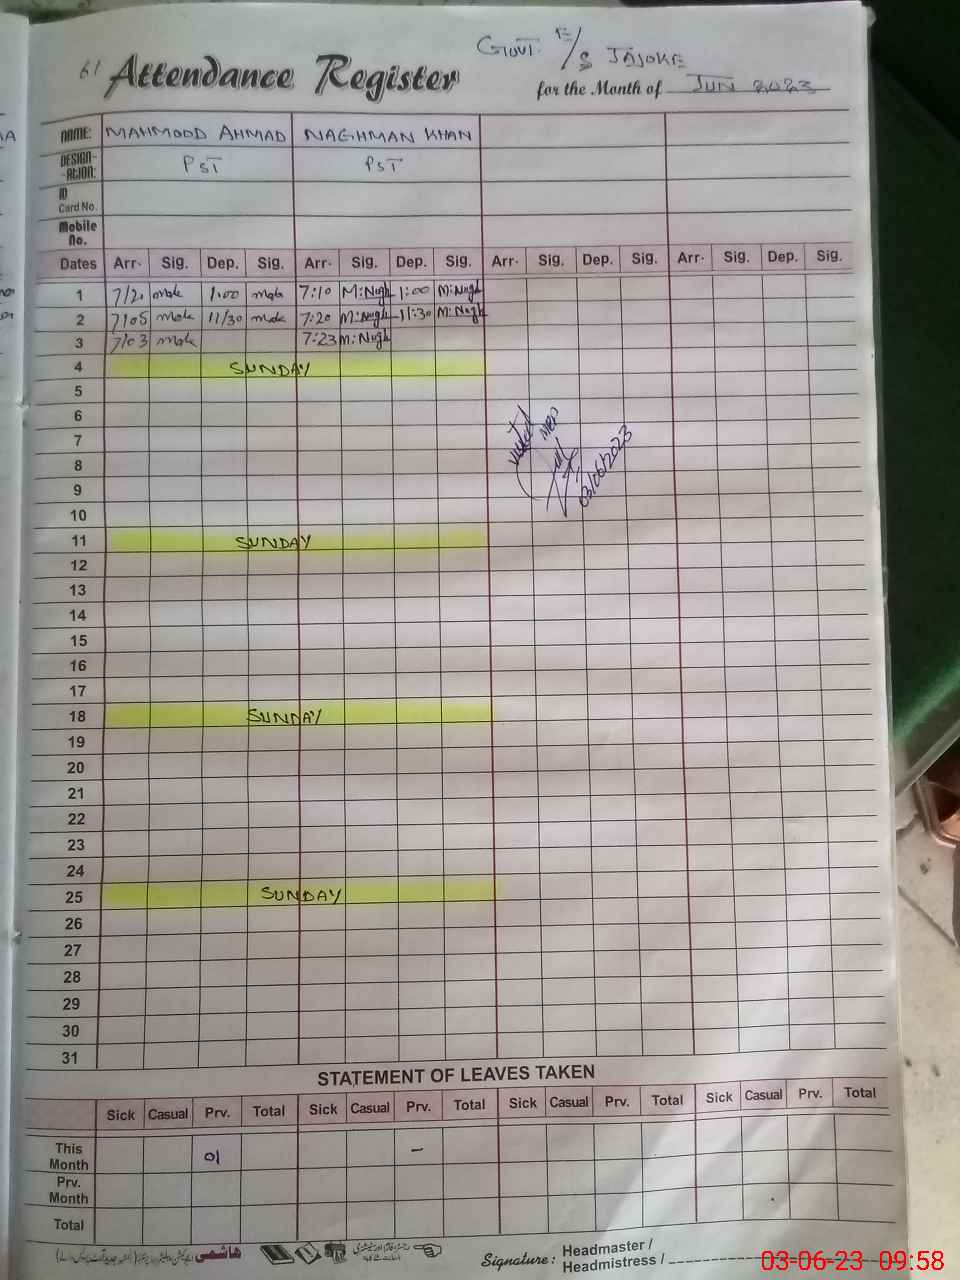 61 Attendance Register
GOVT. E/S JAJOKE
for the Month of JUN 2023
NAME: MAHMOOD AHMAD NAGHMAN KHAN
DESIGN-ATION: PST PST
ID Card No.
Mobile No.
Dates Arr. Sig. Dep. Sig. Arr. Sig. Dep. Sig. Arr. Sig. Dep. Sig. Arr. Sig. Dep. Sig.
1 7/20 1:00 7:10 M:Nagh 1:00 M:Nagh
2 7/05 11/30 7:20 M:Nagh 11:30 M:Nagh
3 7/03 7:23 M:Nagh
4 SUNDAY
5
6
7
8
9
10
03/06/2023
11 SUNDAY
12
13
14
15
16
17
18 SUNDAY
19
20
21
22
23
24
25 SUNDAY
26
27
28
29
30
31
STATEMENT OF LEAVES TAKEN
Sick Casual Prv. Total Sick Casual Prv. Total Sick Casual Prv. Total Sick Casual Prv. Total
This Month 01 –
Prv. Month
Total
ہاشمی
Signature: Headmaster / Headmistress /
03-06-23 09:58